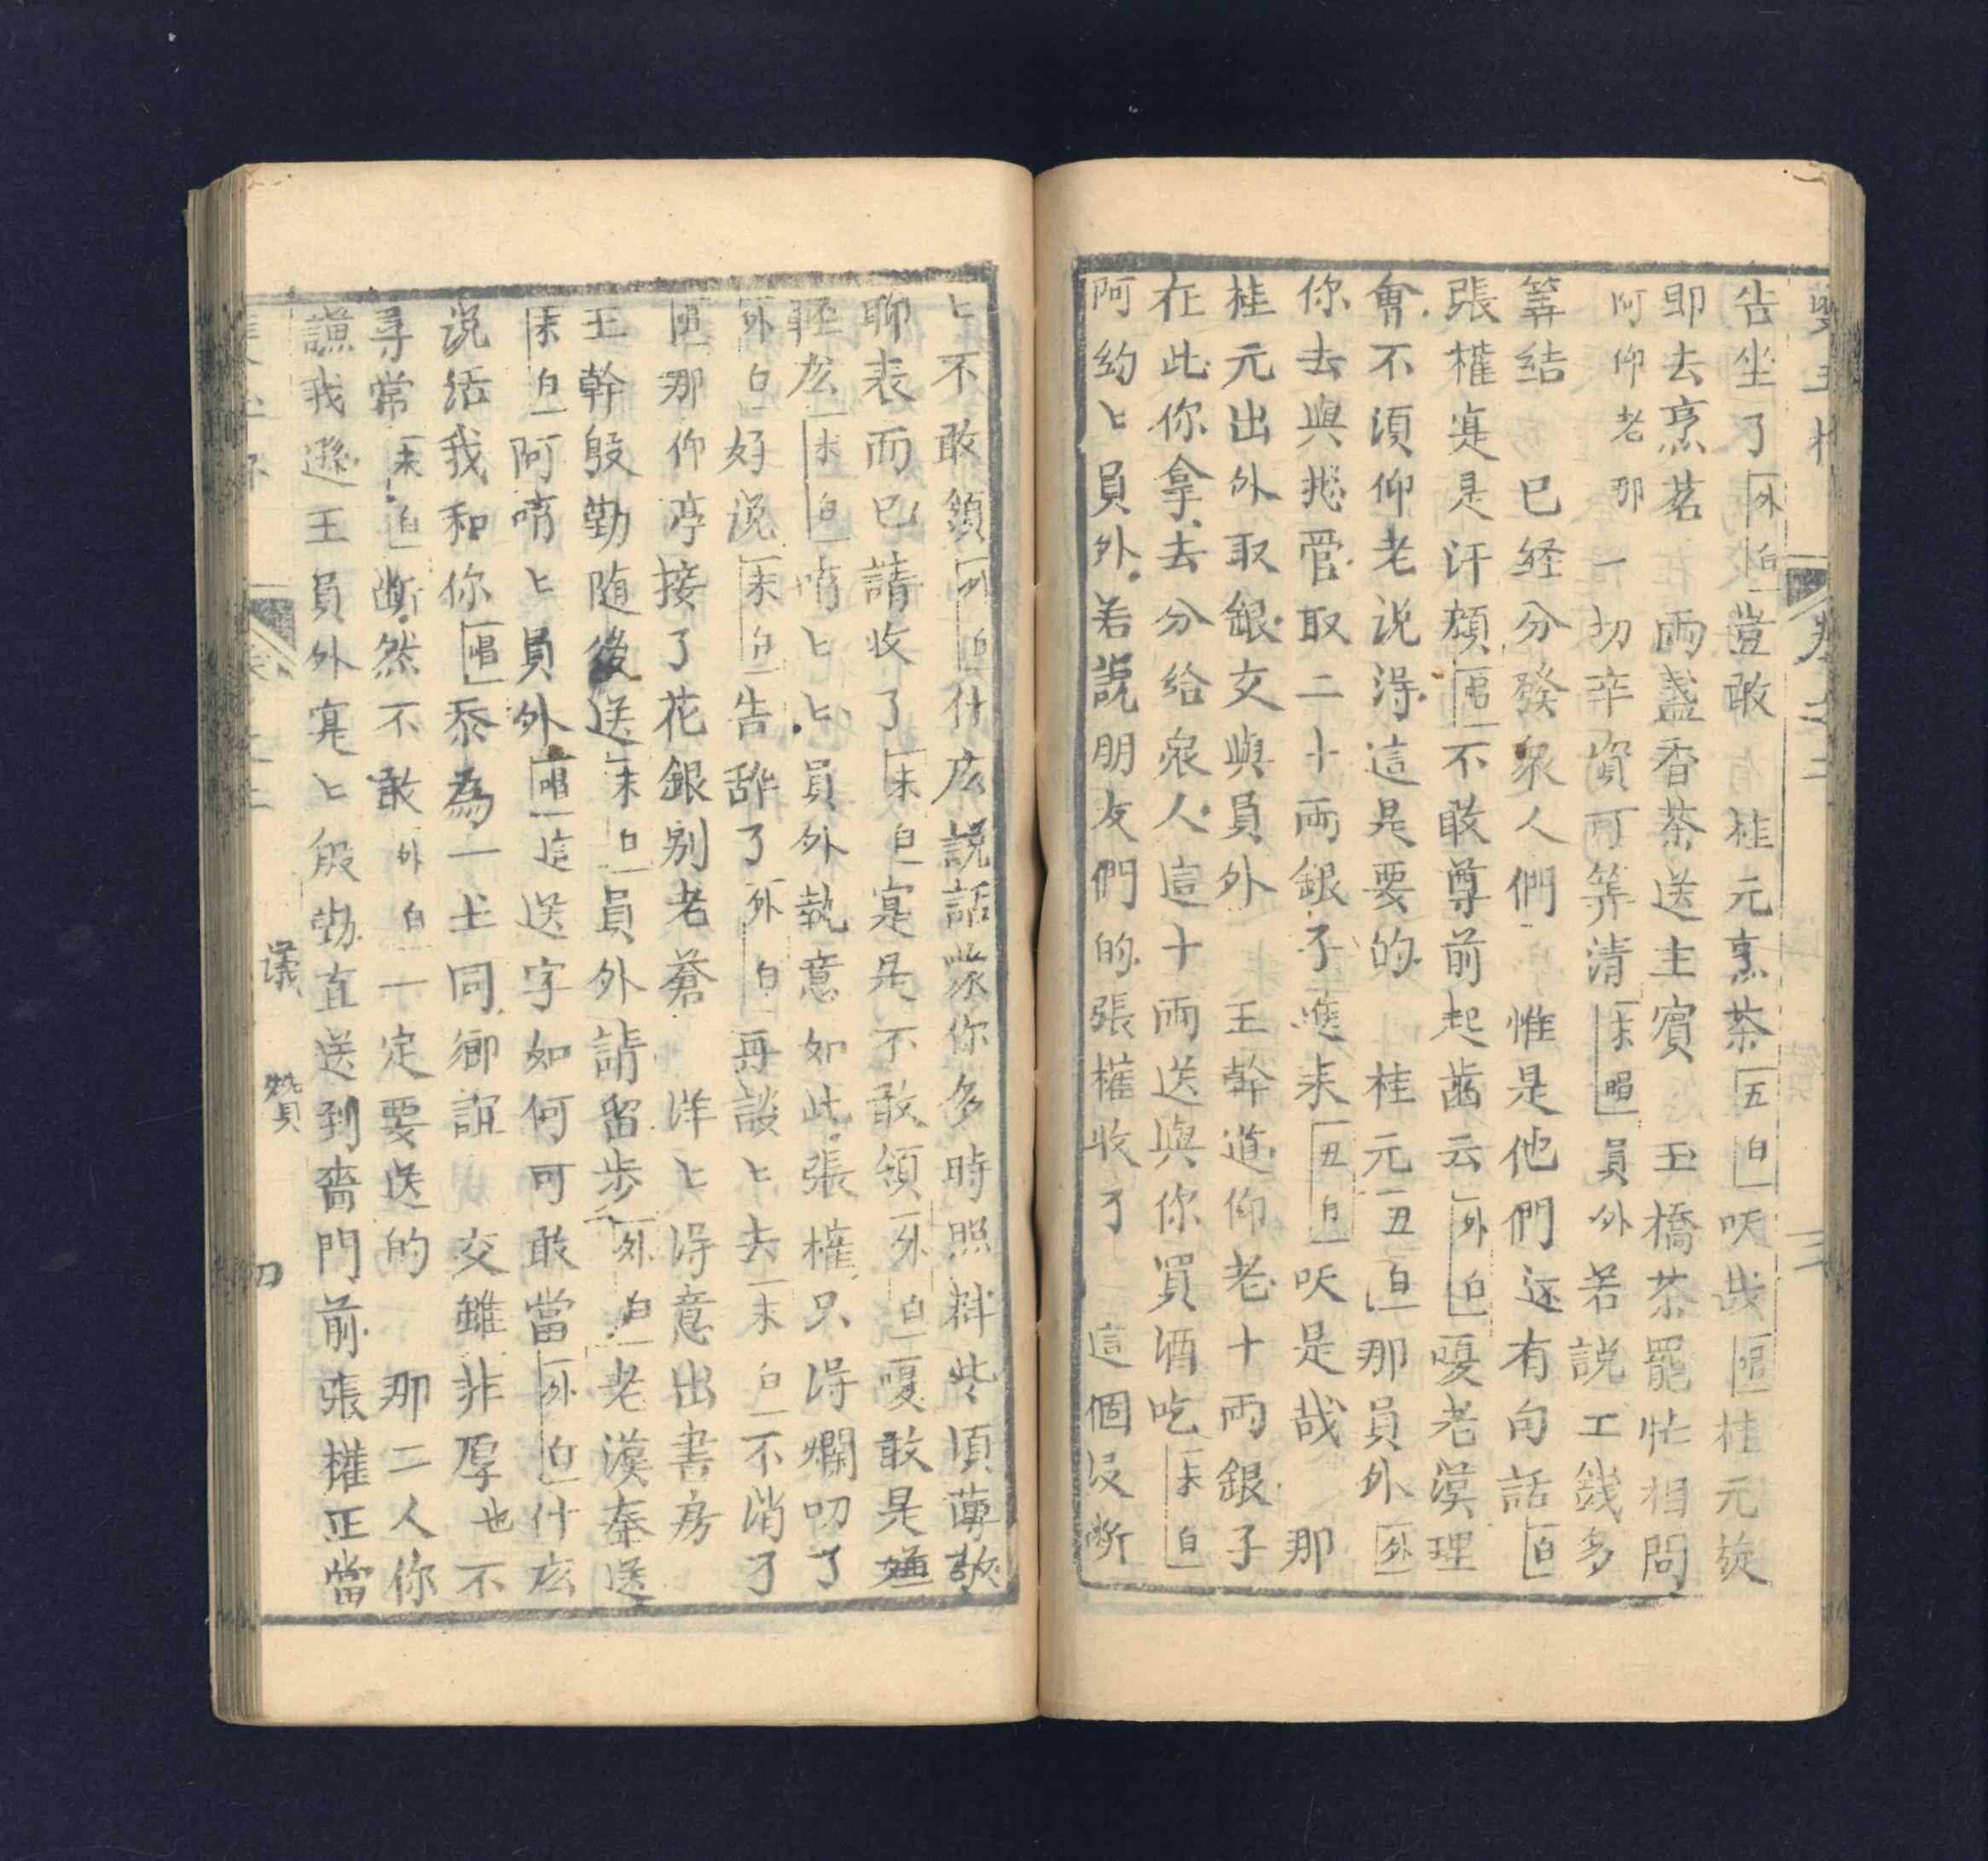 告坐了外白豈敢 桂元烹茶五白呀哉唱桂元旋
即去烹茗 兩盞香茶送主賓 玉橋茶罷忙相問
阿仰老那一切辛資可筭清末唱員外若説工錢多
筭結 已経分發衆人們 惟是他們还有句話白
張權寔是汗顔唱不敢尊前起齒云外白嗄老漢理
會不須仰老说淂這是要的 桂元丑白那員外外
你去與總管取二十兩銀子進来丑白呀是哉 那
桂元出外取銀交與員外 王幹道仰老十兩銀子
在此你拿去分給衆人這十兩送與你買酒吃末白
阿约ヒ員外若説朋友們的張權收了 這個叚断
ヒ不敢領外白什庅説話蒙你多時照料些湏薄敬
聊表而已請收了末白寔是不敢領外白嗄敢是嫌
輕庅末白唷ヒヒ員外執意如此張權只淂爛叨了
外白好说末白告辞了外白再談ヒ去末白不消了
唱那仰亭接了花銀别老蒼 洋ヒ淂意出書房
王幹殷勤随後送末白員外請留步外白老漢奉送
末白阿唷ヒ員外唱這送字如何可敢當外白什庅
说话我和你唱忝為一土同鄉誼 交雖非厚也不
尋常末白断然不敢外白一定要送的 那二人你
謙我遜王員外寔ヒ殷勤直送到啬門前張權正當
議 贊